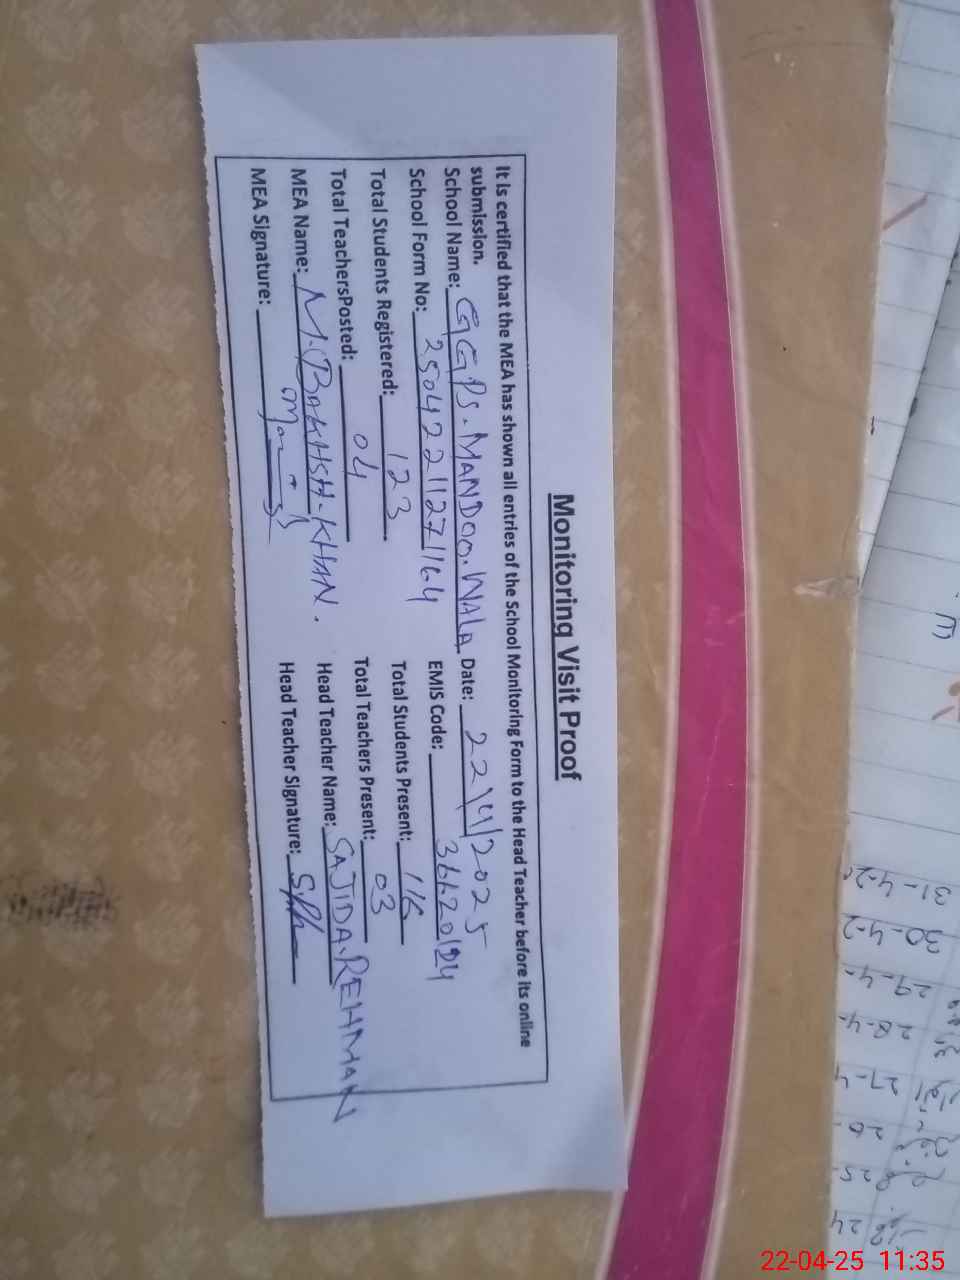 Monitoring Visit Proof
It is certified that the MEA has shown all entries of the School Monitoring Form to the Head Teacher before its online
submission.
School Name: GGPS. MANDOO. WALA Date: 22/4/2025
School Form No: 25042211271164 EMIS Code: 36620124
Total Students Registered: 123 Total Students Present: 116
Total TeachersPosted: 04 Total Teachers Present: 03
MEA Name: M. BAKHSH. KHAN. Head Teacher Name: SAJIDA. REHMAN
MEA Signature: Head Teacher Signature:
31-4-2
30-4-2
29-4-
28-4-
27-4
26-
25-
24
22-04-25 11:35